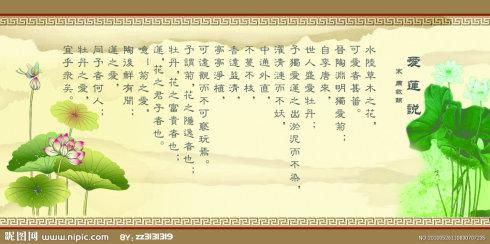 愛蓮說
宋 周敦頤
水陸草木之花，
可愛者甚蕃。
晉陶淵明獨愛菊；
自李唐來，
世人盛愛牡丹；
予獨愛蓮之出淤泥而不染，
濯清漣而不妖，
中通外直，
不蔓不枝，
香遠益清，
亭亭淨植，
可遠觀而不可褻玩焉。
予謂菊，花之隱逸者也；
牡丹，花之富貴者也；
蓮，花之君子者也。
噫！菊之愛，
陶後鮮有聞；
蓮之愛，
同予者何人；
牡丹之愛，
宜乎衆矣。
昵图网
www.nipic.com BY: zz3131319